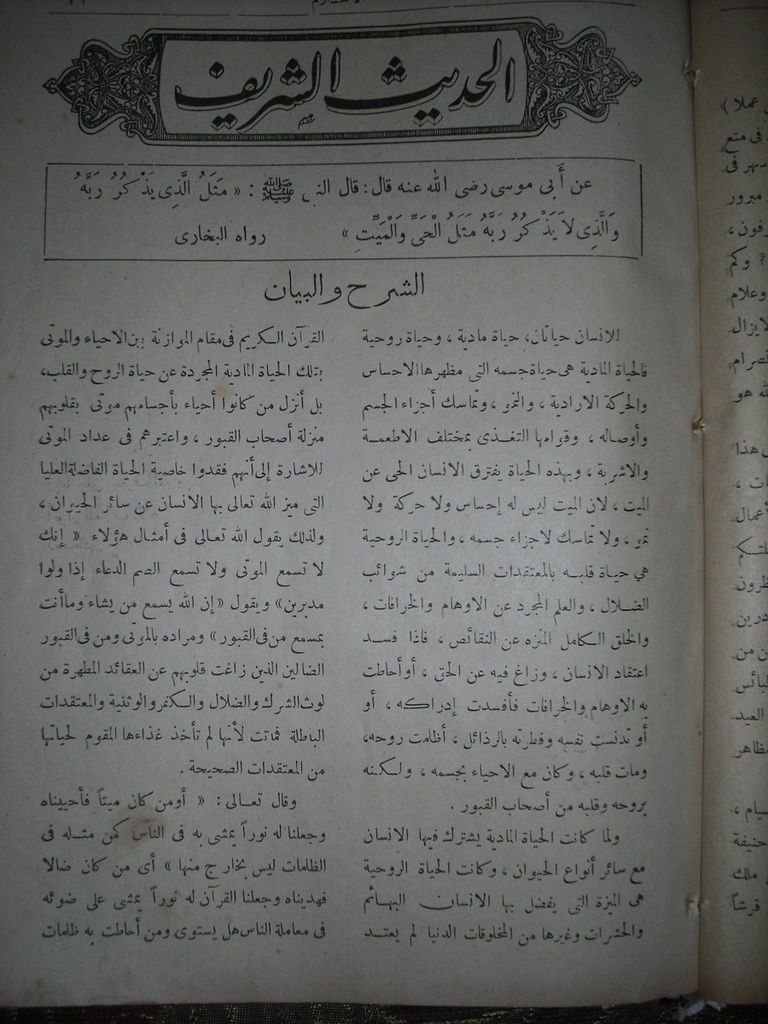 الحديث الشريف
عن أبى موسى رضى الله عنه قال : قال النبى ﷺ : « مَثَلُ الَّذِى يَذْكُرُ رَبَّهُ
وَالَّذِى لاَ يَذْكُرُ رَبَّهُ مَثَلُ الْحَىِّ وَالْمَيِّتِ » رواه البخارى
الشرح والبيان
للانسان حياتان، حياة مادية ، وحياة روحية
فالحياة المادية هى حياة جسمه التى مظهرها الاحساس
والحركة الارادية ، والنمو ، وتماسك أجزاء الجسم
وأوصاله ، وقوامها التغذى بمختلف الاطعمة
والاشربة ، وبهذه الحياة يفترق الانسان الحى عن
الميت ، لان الميت ليس له إحساس ولا حركة ولا
نمو ، ولا تماسك لاجزاء جسمه ، والحياة الروحية
هي حياة قلبه بالمعتقدات السليمة من شوائب
الضلال ، والعلم المجرد عن الاوهام والخرافات ،
والخلق الكامل المنزه عن النقائص ، فاذا فسد
اعتقاد الانسان ، وزاغ فيه عن الحق ، أو أحاطت
به الاوهام والخرافات فأفسدت إدراكه ، أو
أو تدنست نفسه وفطرته بالرذائل ، أظلمت روحه،
ومات قلبه ، وكان مع الاحياء بجسمه ، ولكنه
بروحه وقلبه من أصحاب القبور .
ولما كانت الحياة المادية يشترك فيها الانسان
مع سائر أنواع الحيوان ، وكانت الحياة الروحية
هى الميزة التى يفضل بها الانسان البهائم
والحشرات وغيرها من المخلوقات الدنيا لم يعتد
القرآن الكريم فى مقام الموازنة بين الاحياء والموتى
بتلك الحياة المادية المجردة عن حياة الروح والقلب،
بل أنزل من كانوا أحياء بأجسامهم موتى بقلوبهم
منزلة أصحاب القبور ، واعتبرهم فى عداد الموتى
للاشارة إلى أنهم فقدوا خاصية الحياة الفاضلة العليا
التى ميز الله تعالى بها الانسان عن سائر الحيوان ،
ولذلك يقول الله تعالى فى أمثال هؤلاء « إنك
لا تسمع الموتى ولا تسمع الصم الدعاء إذا ولوا
مدبرين » ويقول « إن الله يسمع من يشاء وما أنت
بمسمع من فى القبور » ومراده بالموتى ومن فى القبور
الضالين الذين زاغت قلوبهم عن العقائد المطهرة من
لوث الشرك والضلال والكفر والوثنية والمعتقدات
الباطلة فماتت لأنها لم تأخذ غذاءها المقوم لحياتها
من المعتقدات الصحيحة .
وقال تعالى : « أومن كان ميتاً فأحييناه
وجعلنا له نوراً يمشى به فى الناس كمن مثله فى
الظلمات ليس بخارج منها » أى من كان ضالا
فهديناه وجعلنا القرآن له نوراً يمشى على ضوئه
فى معاملة الناس هل يستوى ومن أحاطت به ظلمات